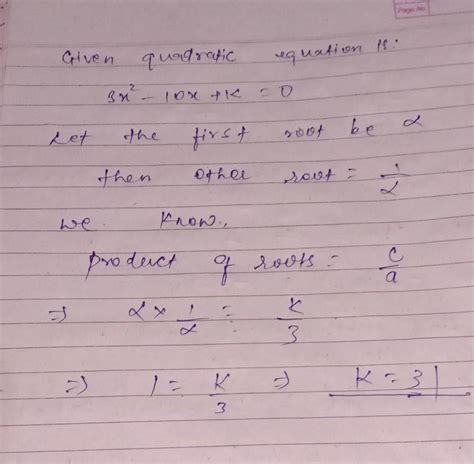 Page No.
Given quadratic equation is:
3x² - 10x + K = 0
Let the first root be α
then other root = 1/α
We know,
product of roots = c/a
⇒ α × 1/α = K/3
⇒ 1 = K/3 ⇒ K = 3